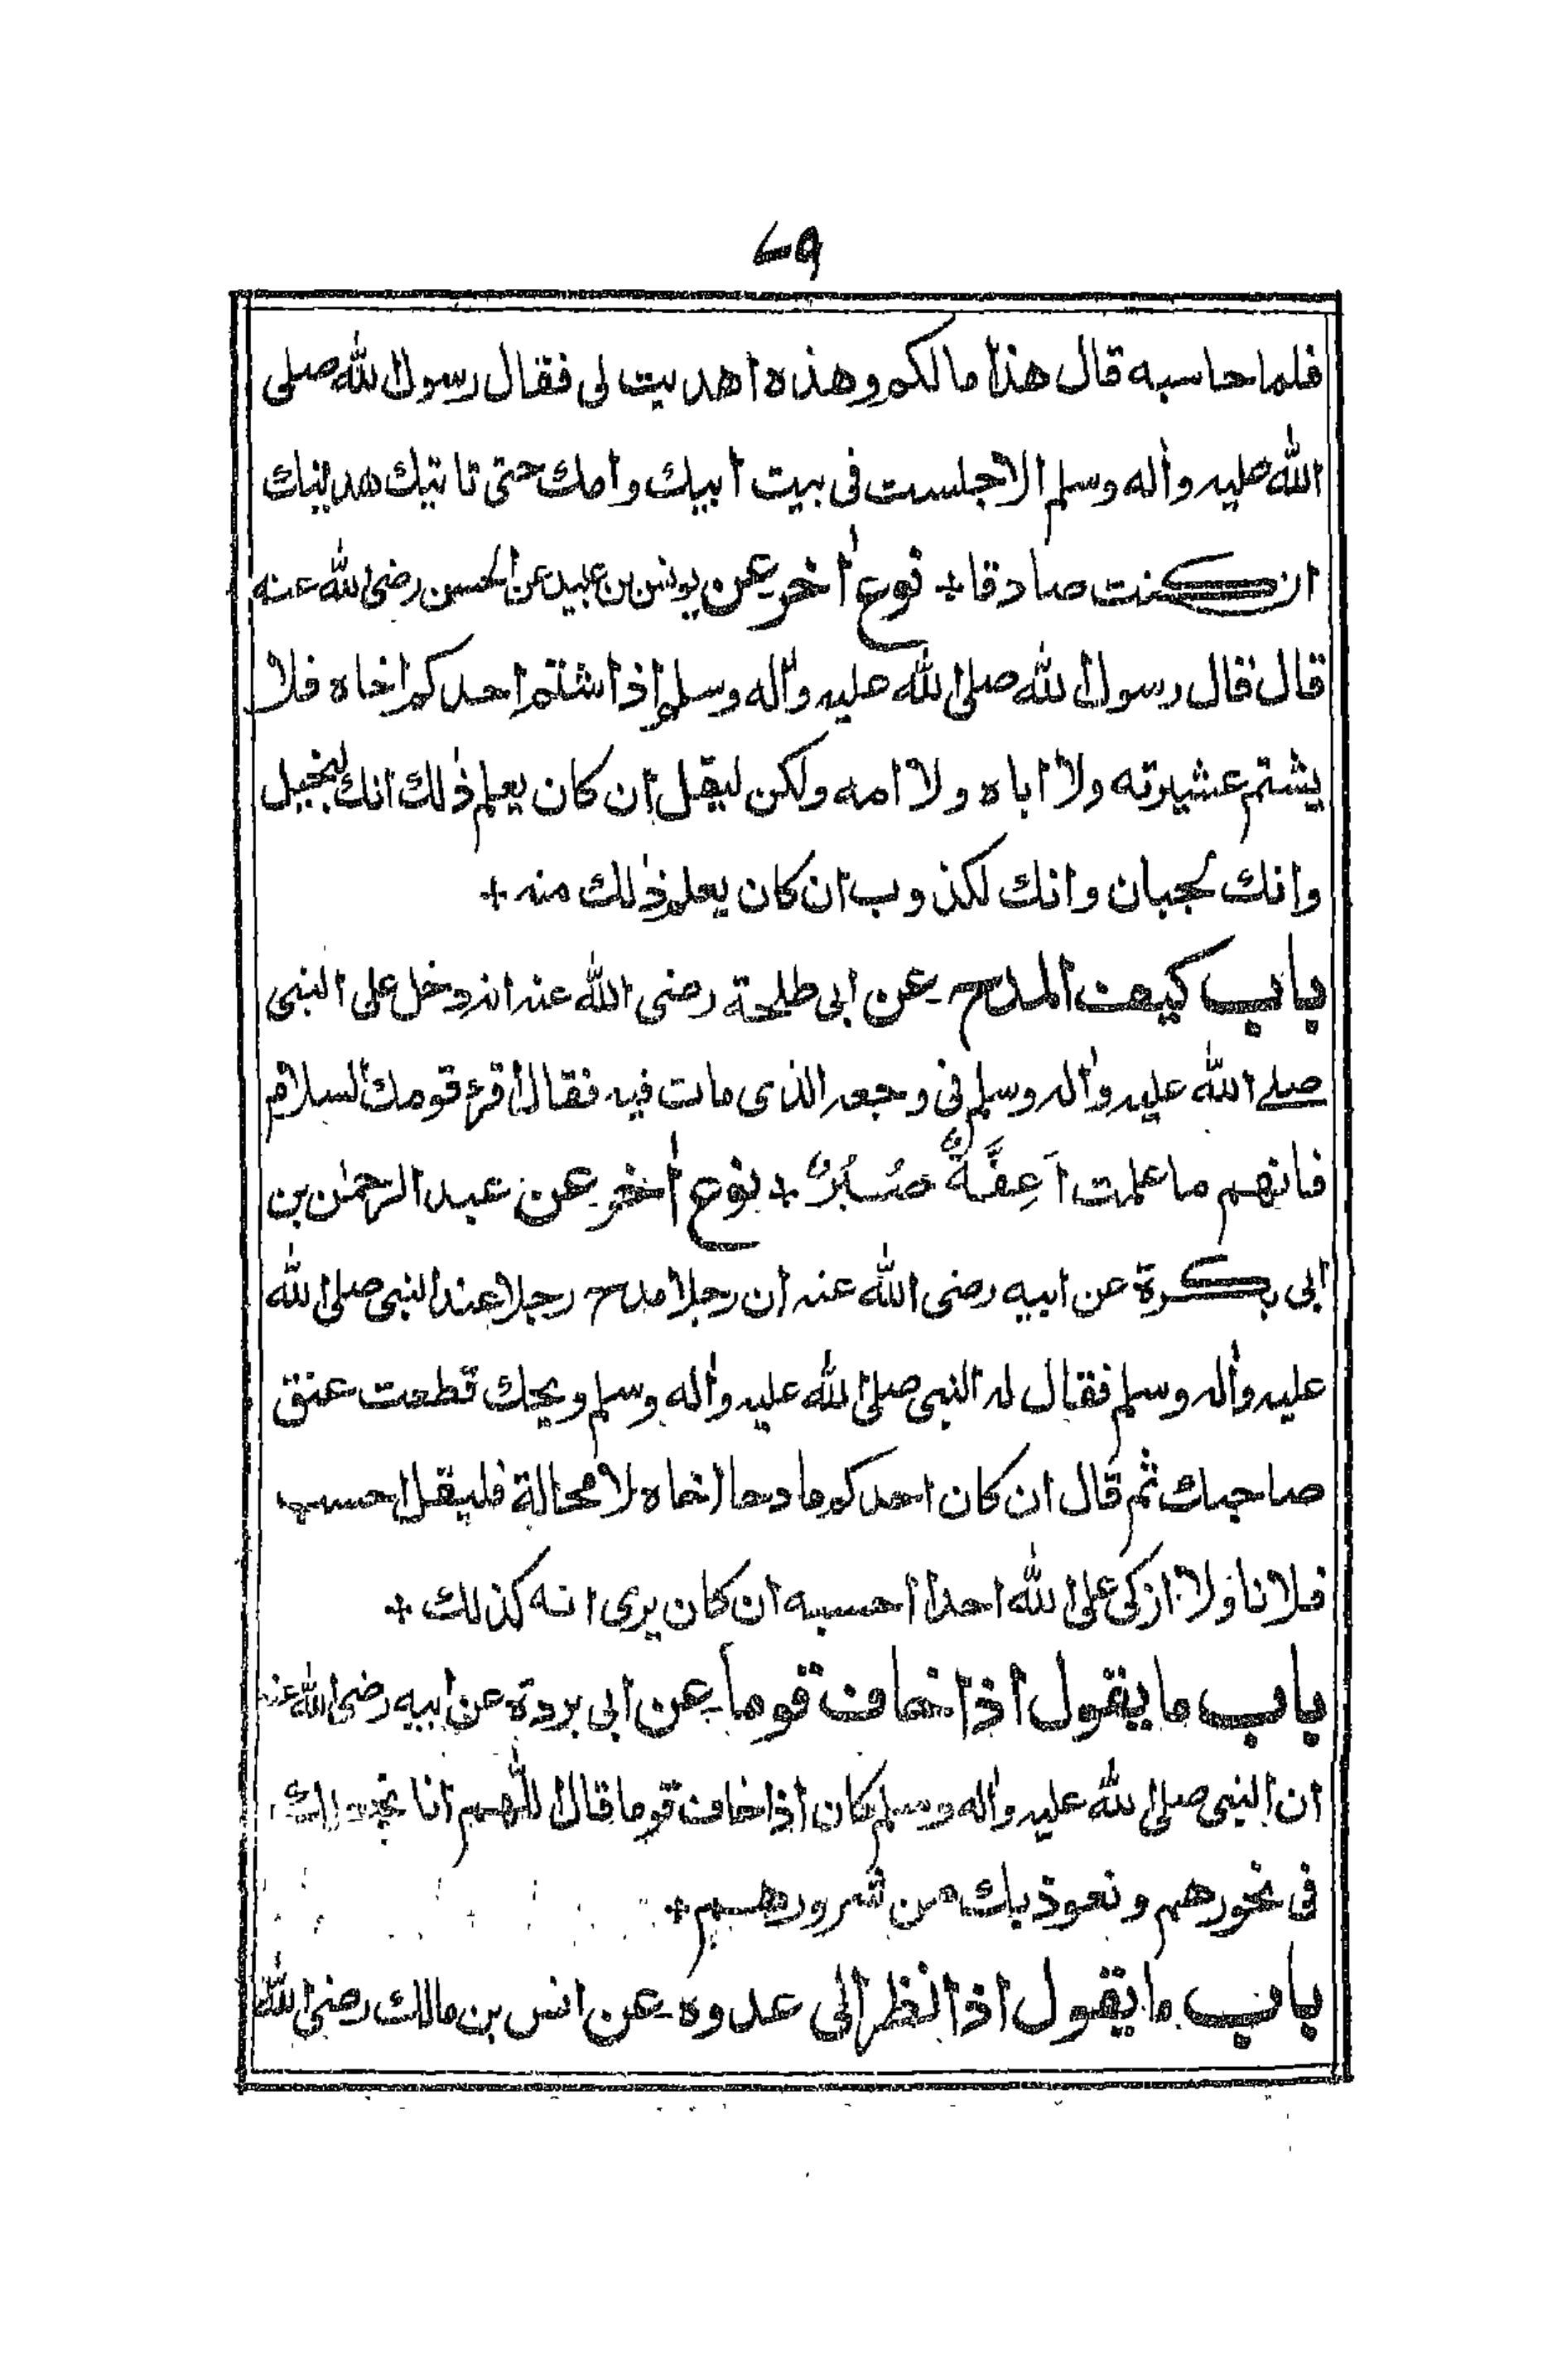 ٧٩
فلما حاسبه قال هذا مالكم وهذه اهديت لى فقال رسول الله صلى
الله عليه واٰله وسلم الاجلست فى بيت ابيك وامك حتى تاتيك هديتك
ان كنت صادقا + نوع اٰخر عن يونس بن عبيد عن الحسن رضى الله عنه
قال قال رسول الله صلى الله عليه واٰله وسلم اذا شتم احدكم اخاه فلا
يشتم عشيرته ولا اباه ولا امه ولكن ليقل ان كان يعلم ذٰلك انك لبخيل
وانك لجبان وانك لكذوب ان كان يعلم ذٰلك منه +
باب كيف المدح عن ابى طلحة رضى الله عنه انه دخل على النبى
صلے الله عليه واٰله وسلم فى وجعه الذى مات فيه فقال اقرء قومك السلام
فانهم ما علمت اَعِفَّةٌ صُبُرٌ + نوع اٰخر عن عبد الرحمٰن بن
ابى بكرة عن ابيه رضى الله عنه ان رجلا مدح رجلا عند النبى صلى الله
عليه واٰله وسلم فقال له النبى صلى الله عليه واٰله وسلم ويحك قطعت عنق
صاحبك ثم قال ان كان احدكم مادحا اخاه لا محالة فليقل احسب
فلانا ولا ازكى على الله احدا احسبه ان كان يرى انه كذلك +
باب ما يقول اذا خاف قوما عن ابى بردة عن ابيه رضى الله عنه
ان النبى صلى الله عليه واٰله وسلم كان اذا خاف قوما قال اللّٰهم انا نجعلك
فى نحورهم ونعوذ بك من شرورهم +
باب ما يقول اذا نظر الى عدوه عن انس بن مالك رضى الله